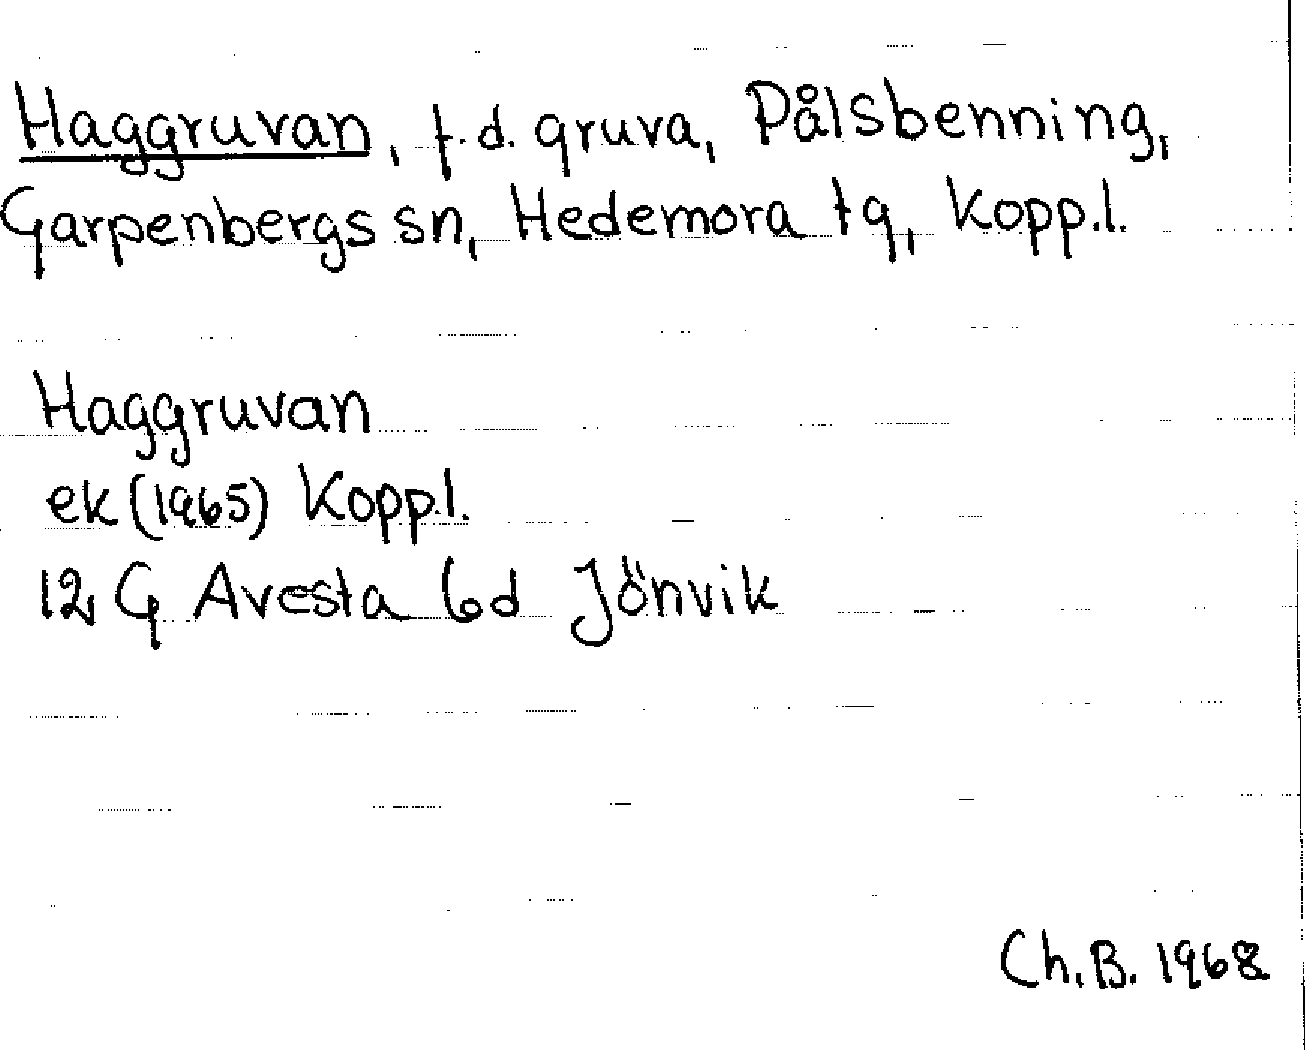 Haggruvan, f.d. gruva, Pålsbenning,
Garpenbergs sn, Hedemora tg, Kopp.l.
Haggruvan
ek (1965) Kopp.l.
12 G Avesta 6d Jönvik
Ch.B. 1968